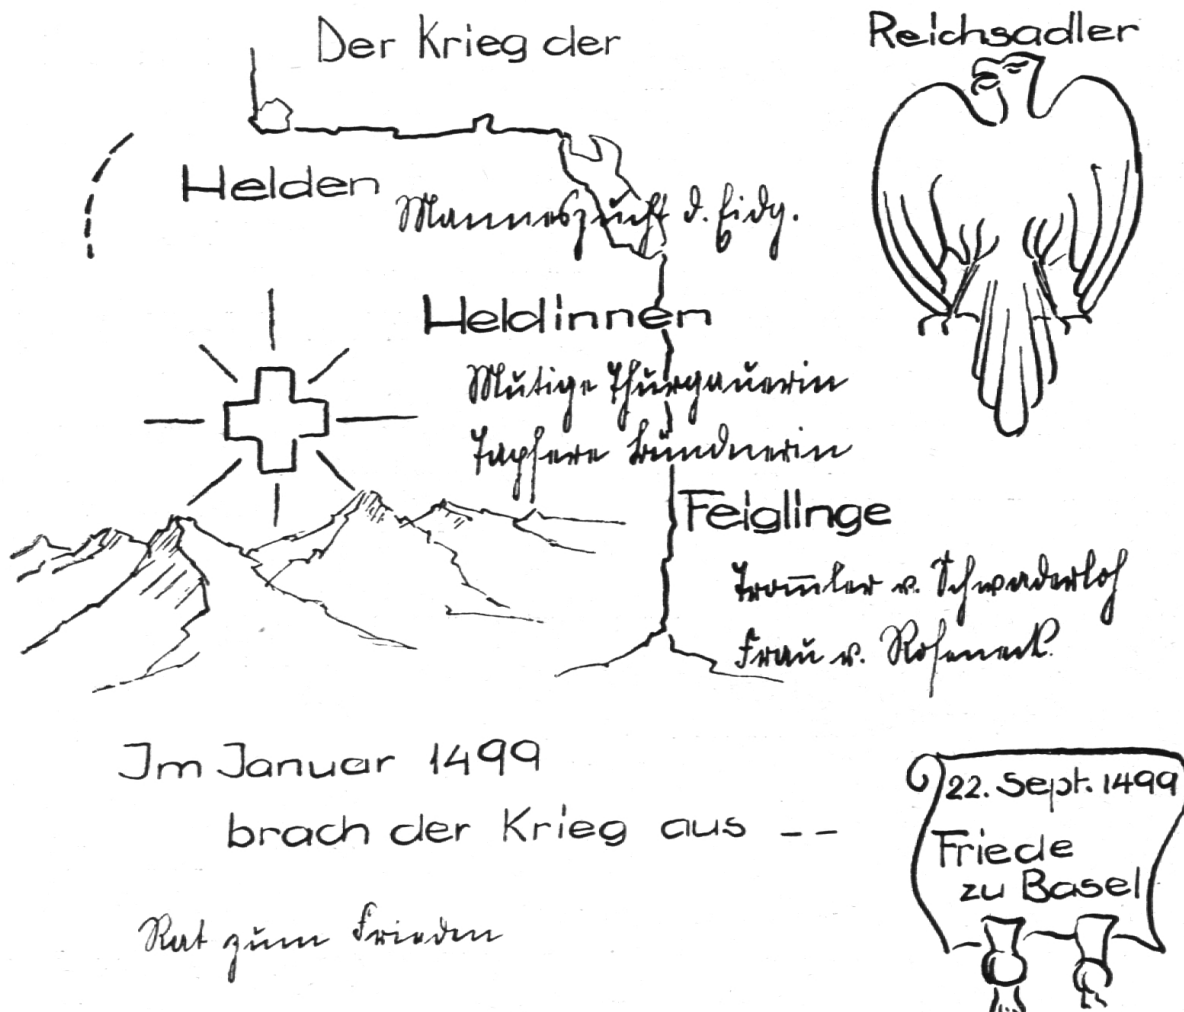 Der Krieg der
Reichsadler
Helden
Manneszucht d. Eidg.
Heldinnen
Mutige Thurgauerin
Tapfere Bündnerin
Feiglinge
Trom̄ler v. Schwaderloh
Frau v. Roseneck.
Im Januar 1499
brach der Krieg aus --
22. Sept. 1499
Friede
zu Basel
Rat zum Frieden